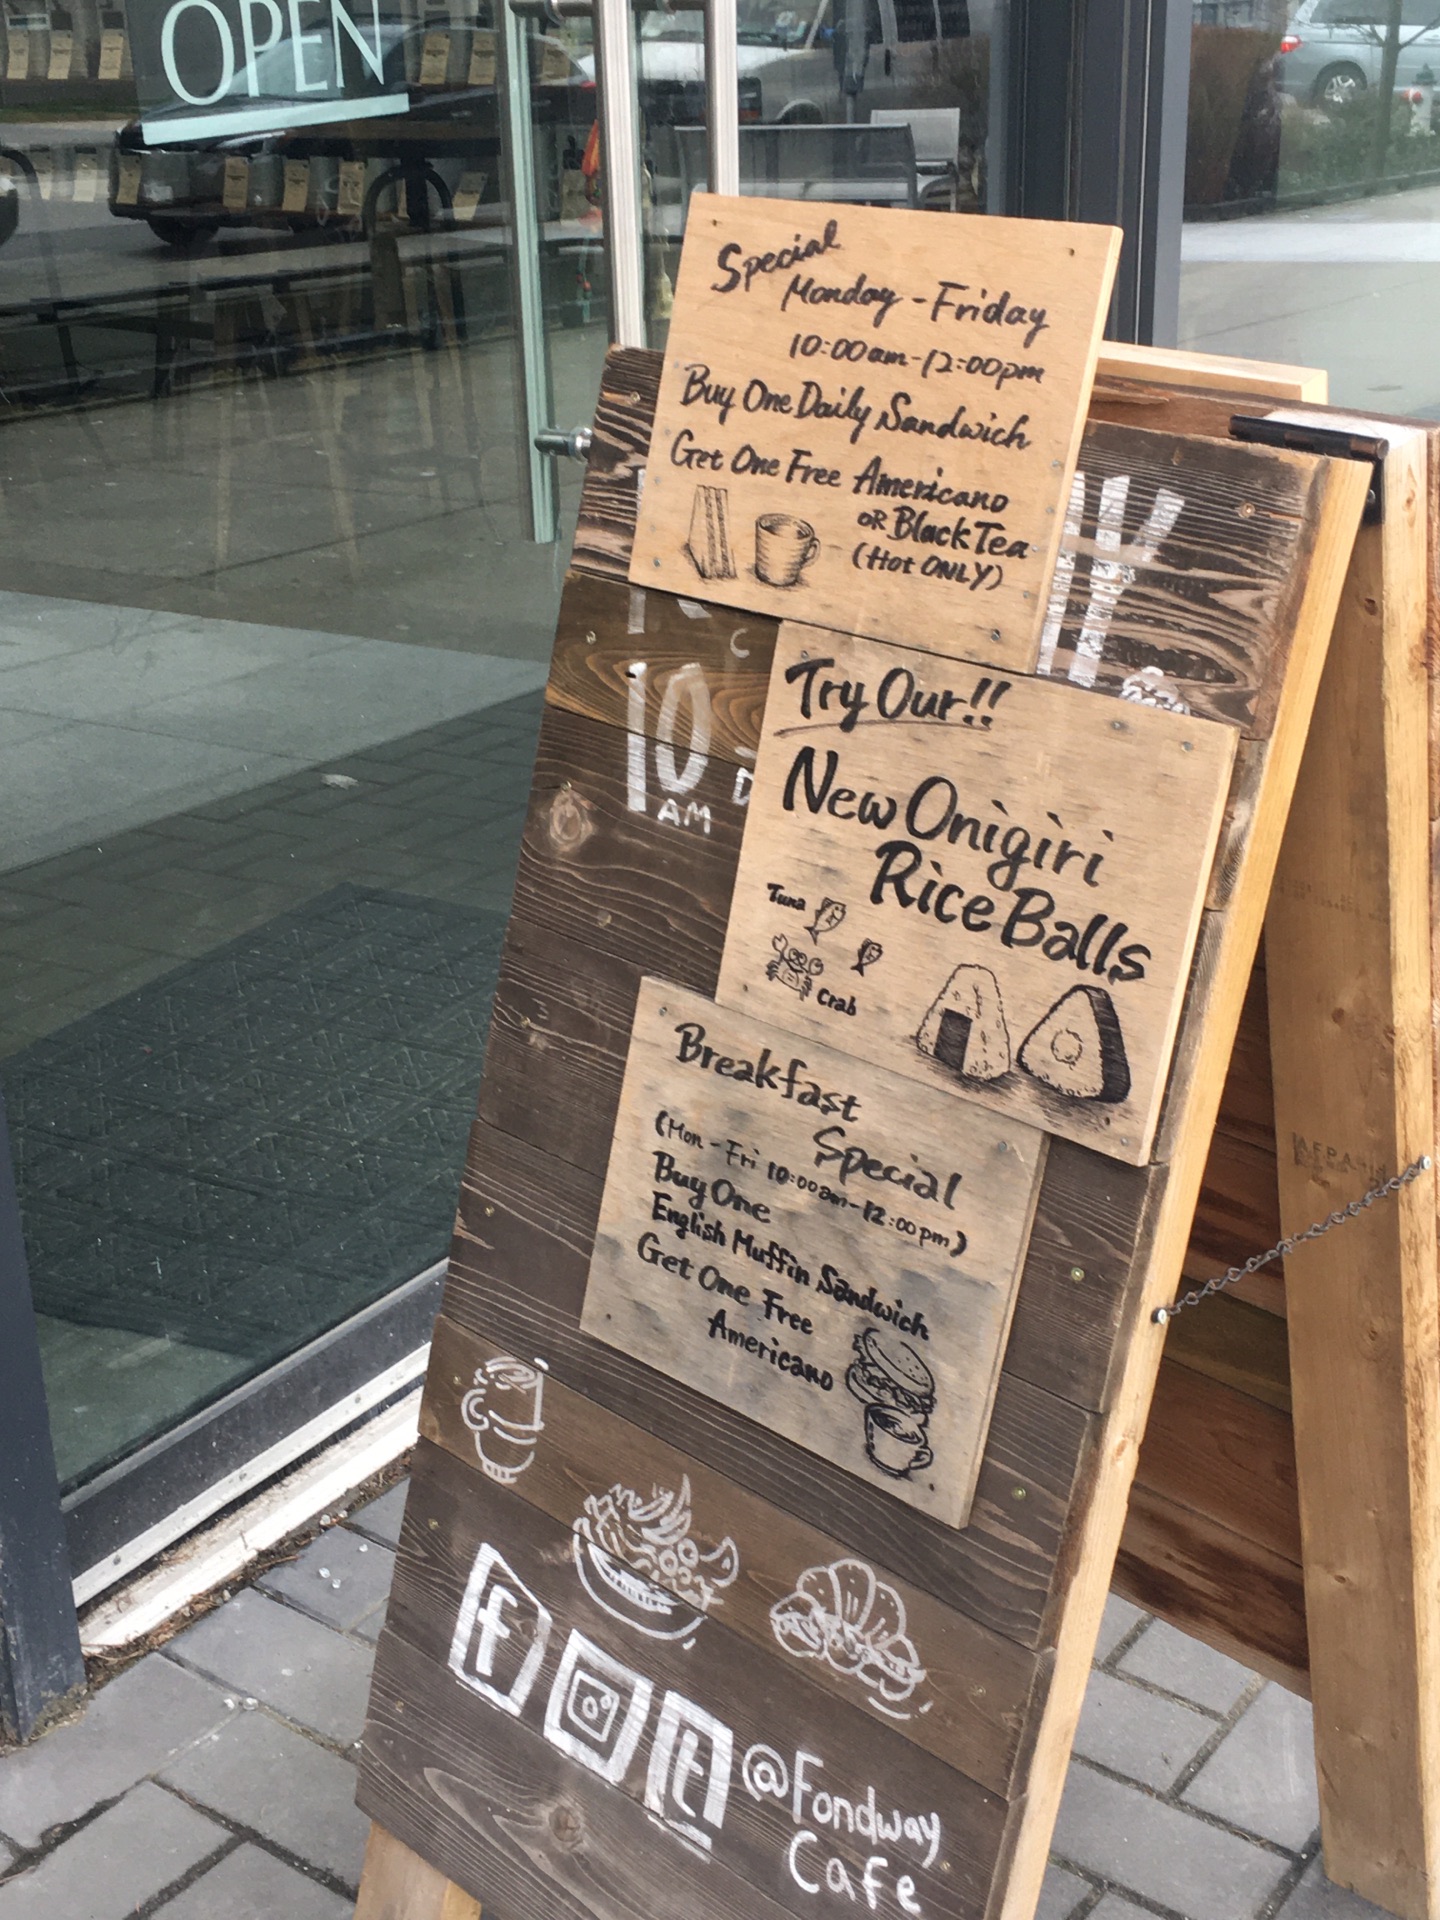 OPEN
Special
Monday - Friday
10:00am-12:00pm
Buy One Daily Sandwich
Get One Free Americano
OR Black Tea
(Hot ONLY)
10
AM
Try Our!!
New Onigiri
Rice Balls
Tuna
Crab
Breakfast
Special
(Mon - Fri 10:00am-12:00pm)
Buy One
English Muffin Sandwich
Get One Free
Americano
f
t
@Fondway
Cafe